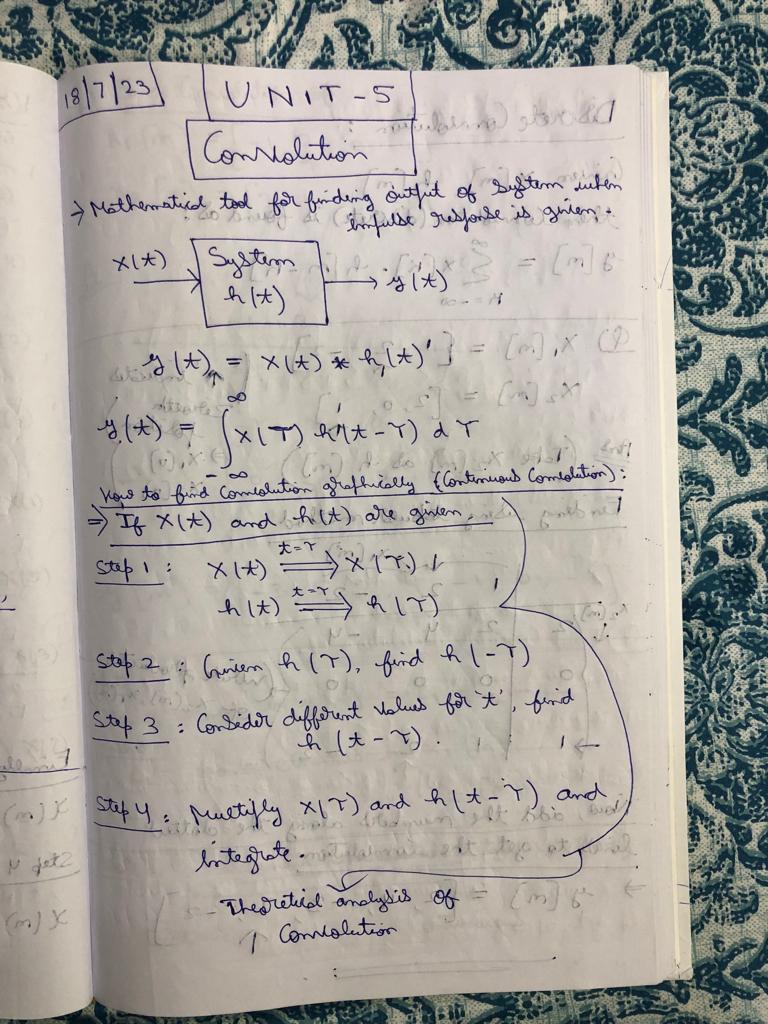 18/7/23
UNIT-5
Convolution
→ Mathematical tool for finding output of system when
impulse response is given.
x(t) → System → y(t)
h(t)
y(t) = x(t) * h(t)
y(t) = ∫_{-∞}^{∞} x(τ) h(t-τ) dτ
How to find Convolution graphically (Continuous Convolution):
⇒ If x(t) and h(t) are given,
Step 1: x(t) ⟹ (t=τ) x(τ)
h(t) ⟹ (t=τ) h(τ)
Step 2: Given h(τ), find h(-τ)
Step 3: Consider different values for 't', find
h(t-τ).
Step 4: Multiply x(τ) and h(t-τ) and
integrate.
Theoretical analysis of
Convolution